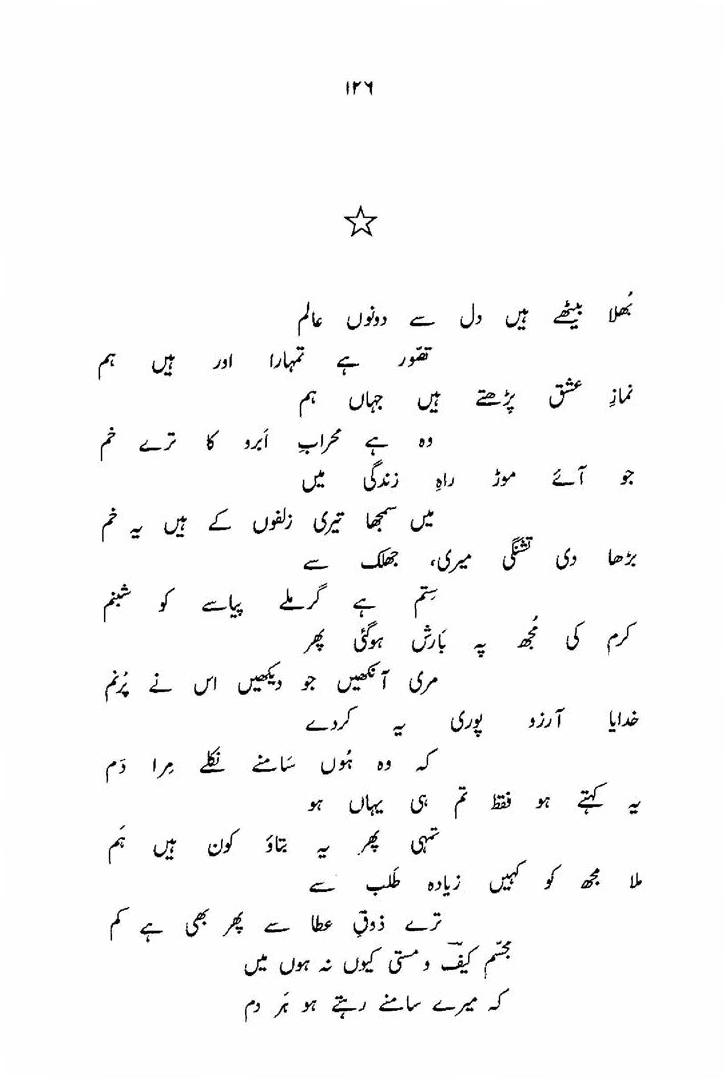 ۱۲۶
بُھلا بیٹھے ہیں دل سے دونوں عالم
تصّور ہے تمہارا اور ہیں ہم
نمازِ عشق پڑھتے ہیں جہاں ہم
وہ ہے محرابِ اَبرو کا ترے خم
جو آئے موڑ راہِ زندگی میں
میں سمجھا تیری زلفوں کے ہیں یہ خم
بڑھا دی تشنگی میری، جھلک سے
سِتم ہے گر ملے پیاسے کو شبنم
کرم کی مُجھ پہ بَارش ہوگئی پھر
مری آنکھیں جو دیکھیں اس نے پُرنم
خدایا آرزو پوری یہ کردے
کہ وہ ہُوں سَامنے نکلے مِرا دَم
یہ کہتے ہو فقط تم ہی یہاں ہو
تمہی پھر یہ بتاؤ کون ہیں ہَم
ملا مجھ کو کہیں زیادہ طَلب سے
ترے ذوقِ عطا سے پھر بھی ہے کم
مجسّم کیف و مستی کیوں نہ ہوں میں
کہ میرے سامنے رہتے ہو ہَر دم